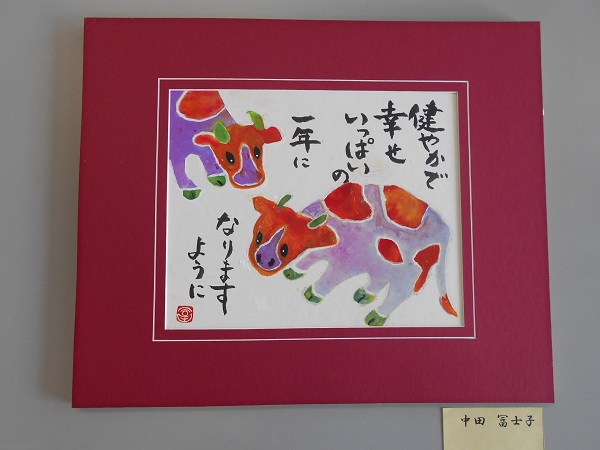 健やかで
幸せ
いっぱいの
一年に
なります
ように
中田 冨士子